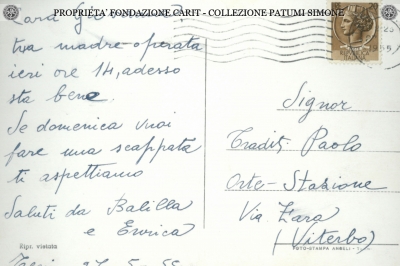 PROPRIETA' FONDAZIONE CARIT - COLLEZIONE PATUMI SIMONE
Cara
tua madre operata
ieri ore 14, adesso
sta bene.
Se domenica vuoi
fare una scappata
ti aspettiamo
Saluti da Balilla
e Enrica
Signor
Tradit. Paolo
Orte-Stazione
Via Fara
(Viterbo)
Ripr. vietata
FOTO-STAMPA ANGELI -